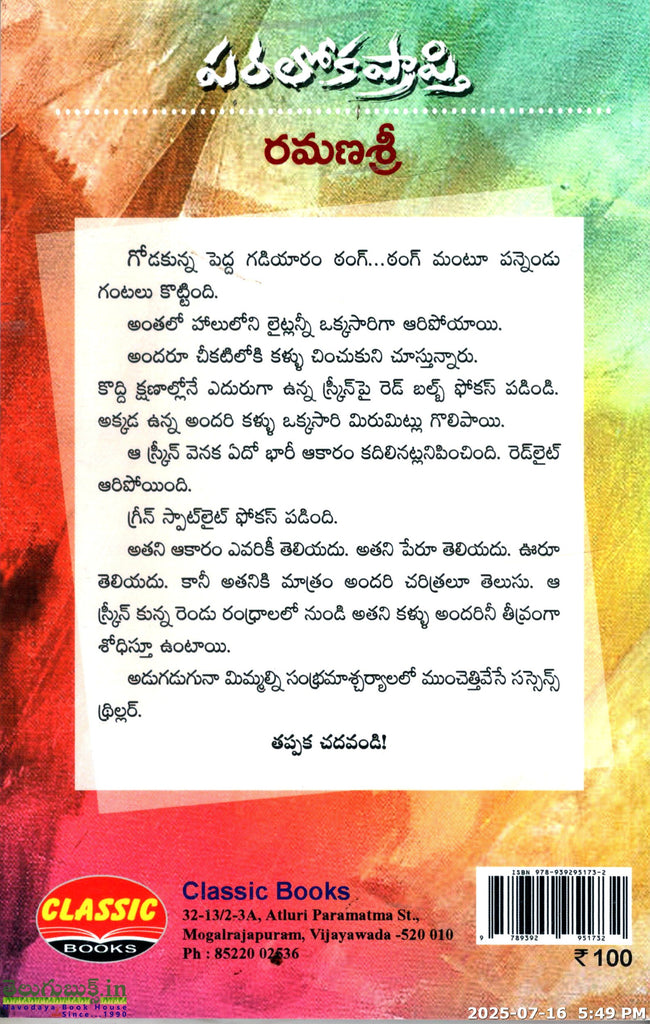 పరలోకప్రాప్తి
రమణశ్రీ
గోడకున్న పెద్ద గడియారం ఠంగ్...ఠంగ్ మంటూ పన్నెండు
గంటలు కొట్టింది.
అంతలో హాలులోని లైట్లన్నీ ఒక్కసారిగా ఆరిపోయాయి.
అందరూ చీకటిలోకి కళ్ళు చించుకుని చూస్తున్నారు.
కొద్ది క్షణాల్లోనే ఎదురుగా ఉన్న స్క్రీన్‌పై రెడ్ బల్బ్ ఫోకస్ పడింది.
అక్కడ ఉన్న అందరి కళ్ళు ఒక్కసారి మిరుమిట్లు గొలిపాయి.
ఆ స్క్రీన్ వెనక ఏదో భారీ ఆకారం కదిలినట్లనిపించింది. రెడ్‌లైట్
ఆరిపోయింది.
గ్రీన్ స్పాట్‌లైట్ ఫోకస్ పడింది.
అతని ఆకారం ఎవరికీ తెలియదు. అతని పేరూ తెలియదు. ఊరూ
తెలియదు. కానీ అతనికి మాత్రం అందరి చరిత్రలూ తెలుసు. ఆ
స్క్రీన్ కున్న రెండు రంధ్రాలలో నుండి అతని కళ్ళు అందరినీ తీవ్రంగా
శోధిస్తూ ఉంటాయి.
అడుగడుగునా మిమ్మల్ని సంభ్రమాశ్చర్యాలలో ముంచెత్తివేసే సస్పెన్స్
థ్రిల్లర్.
తప్పక చదవండి!
CLASSIC
BOOKS
Classic Books
32-13/2-3A, Atluri Paramatma St.,
Mogalrajapuram, Vijayawada -520 010
Ph : 85220 02536
ISBN 978-939295173-2
9 789392 951732
₹ 100
తెలుగుబుక్స్.in
Navodaya Book House
Since...1990
2025-07-16 5:49 PM